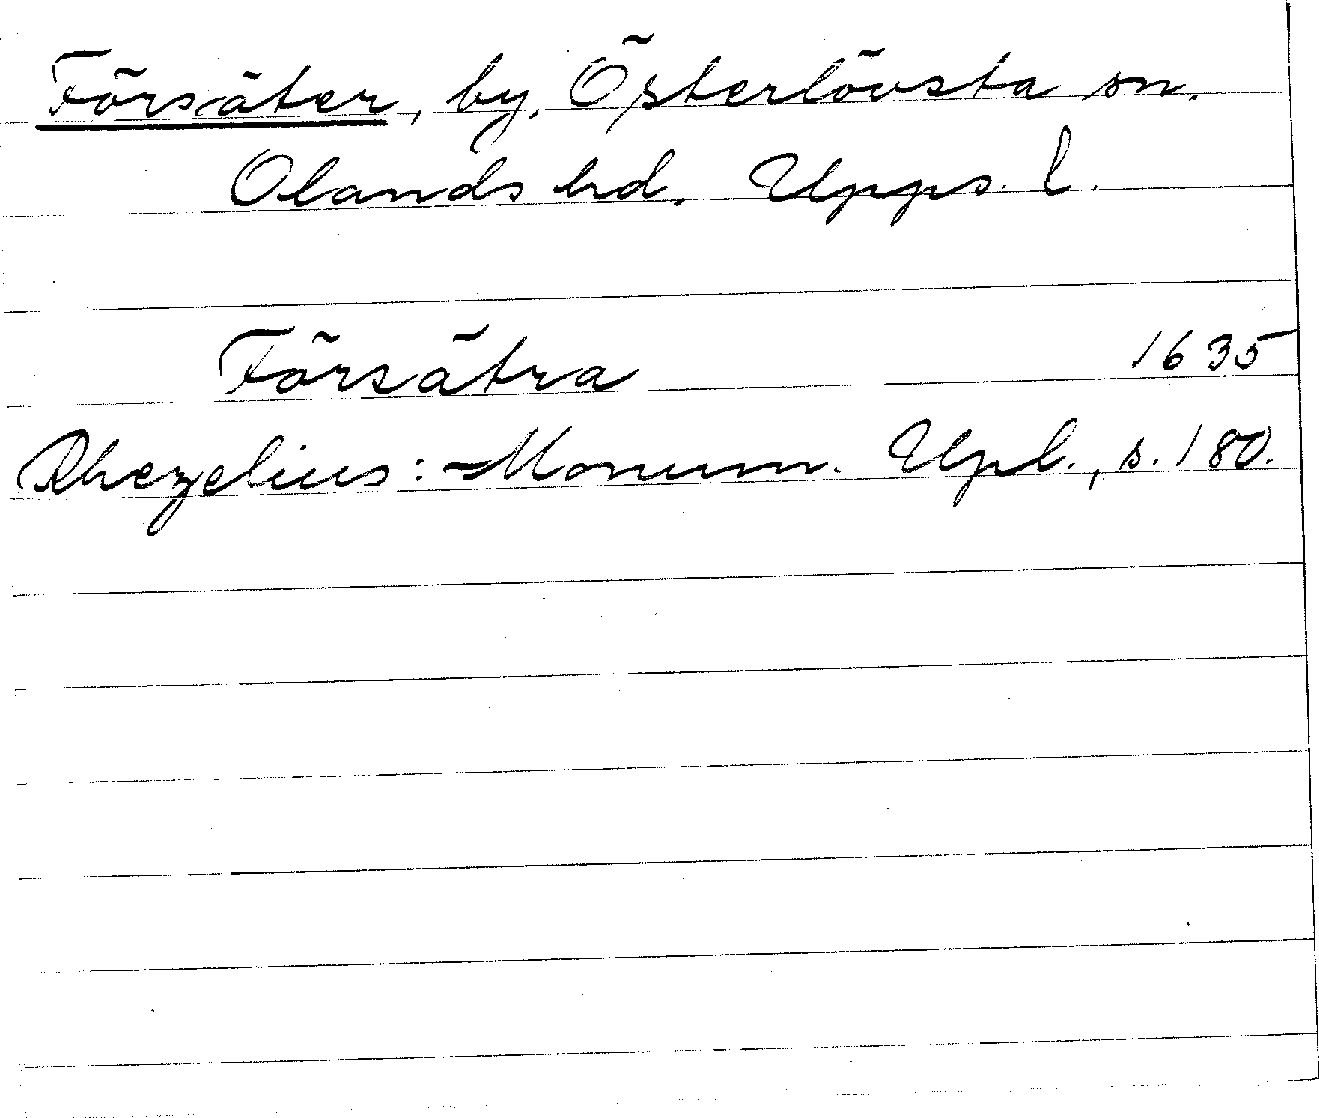 Försäter, by, Österlövsta sn.
Olands hd. Upps. l.
Försätra 1635
Rhezelius: Monum. Upl., s. 180.